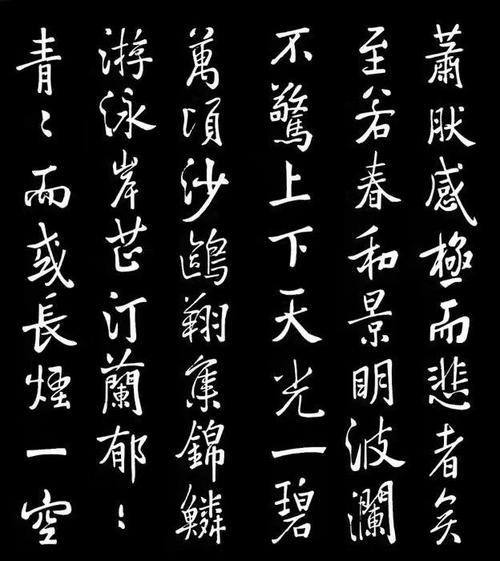 蕭然感極而悲者矣
至若春和景明波瀾
不驚上下天光一碧
萬頃沙鷗翔集錦鱗
游泳岸芷汀蘭郁〻
青〻而或長煙一空